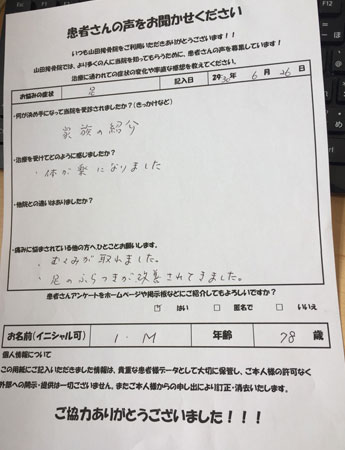 患者さんの声をお聞かせください
いつも山田接骨院をご利用いただきありがとうございます！！
山田接骨院では、より多くの人に当院を知ってもらうために、患者さんの声を募集しています！
治療に通われての症状の変化や率直な感想を教えてください。
お悩みの症状 足 記入日 29 30年 6月 26日
・何が決め手になって当院を受診されましたか？（きっかけなど）
家族の紹介
・治療を受けてどのように感じましたか？
・体が楽になりました
・他院との違いはありましたか？
・痛みに悩まされている他の方へひとことお願いします。
・むくみが取れました。
・足のふらつきが改善されてきました。
患者さんアンケートをホームページや掲示板などにご紹介してもよろしいですか？
☑ はい □ 匿名で □ いいえ
お名前（イニシャル可） I・M 年齢 78 歳
個人情報について
この用紙にご記入いただきました情報は、貴重な患者様データとして大切に保管し、ご本人様の許可なく
外部への開示・提供は一切ございません。またご本人様からの申し出により訂正・消去いたします。
ご協力ありがとうございました！！！